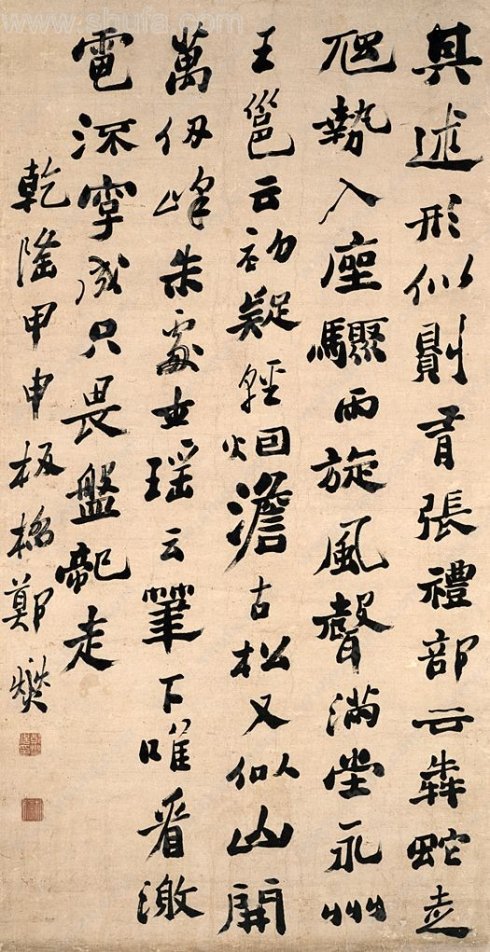 www.shufa.com
其述形似則有張禮部云犇蛇走
虺勢入座驟雨旋風聲滿堂永州
王邕云初疑輕烟澹古松又似山開
萬仞峰朱處士瑶云筆下唯看激
電流字成只畏盤龍走
乾隆甲申板橋鄭燮